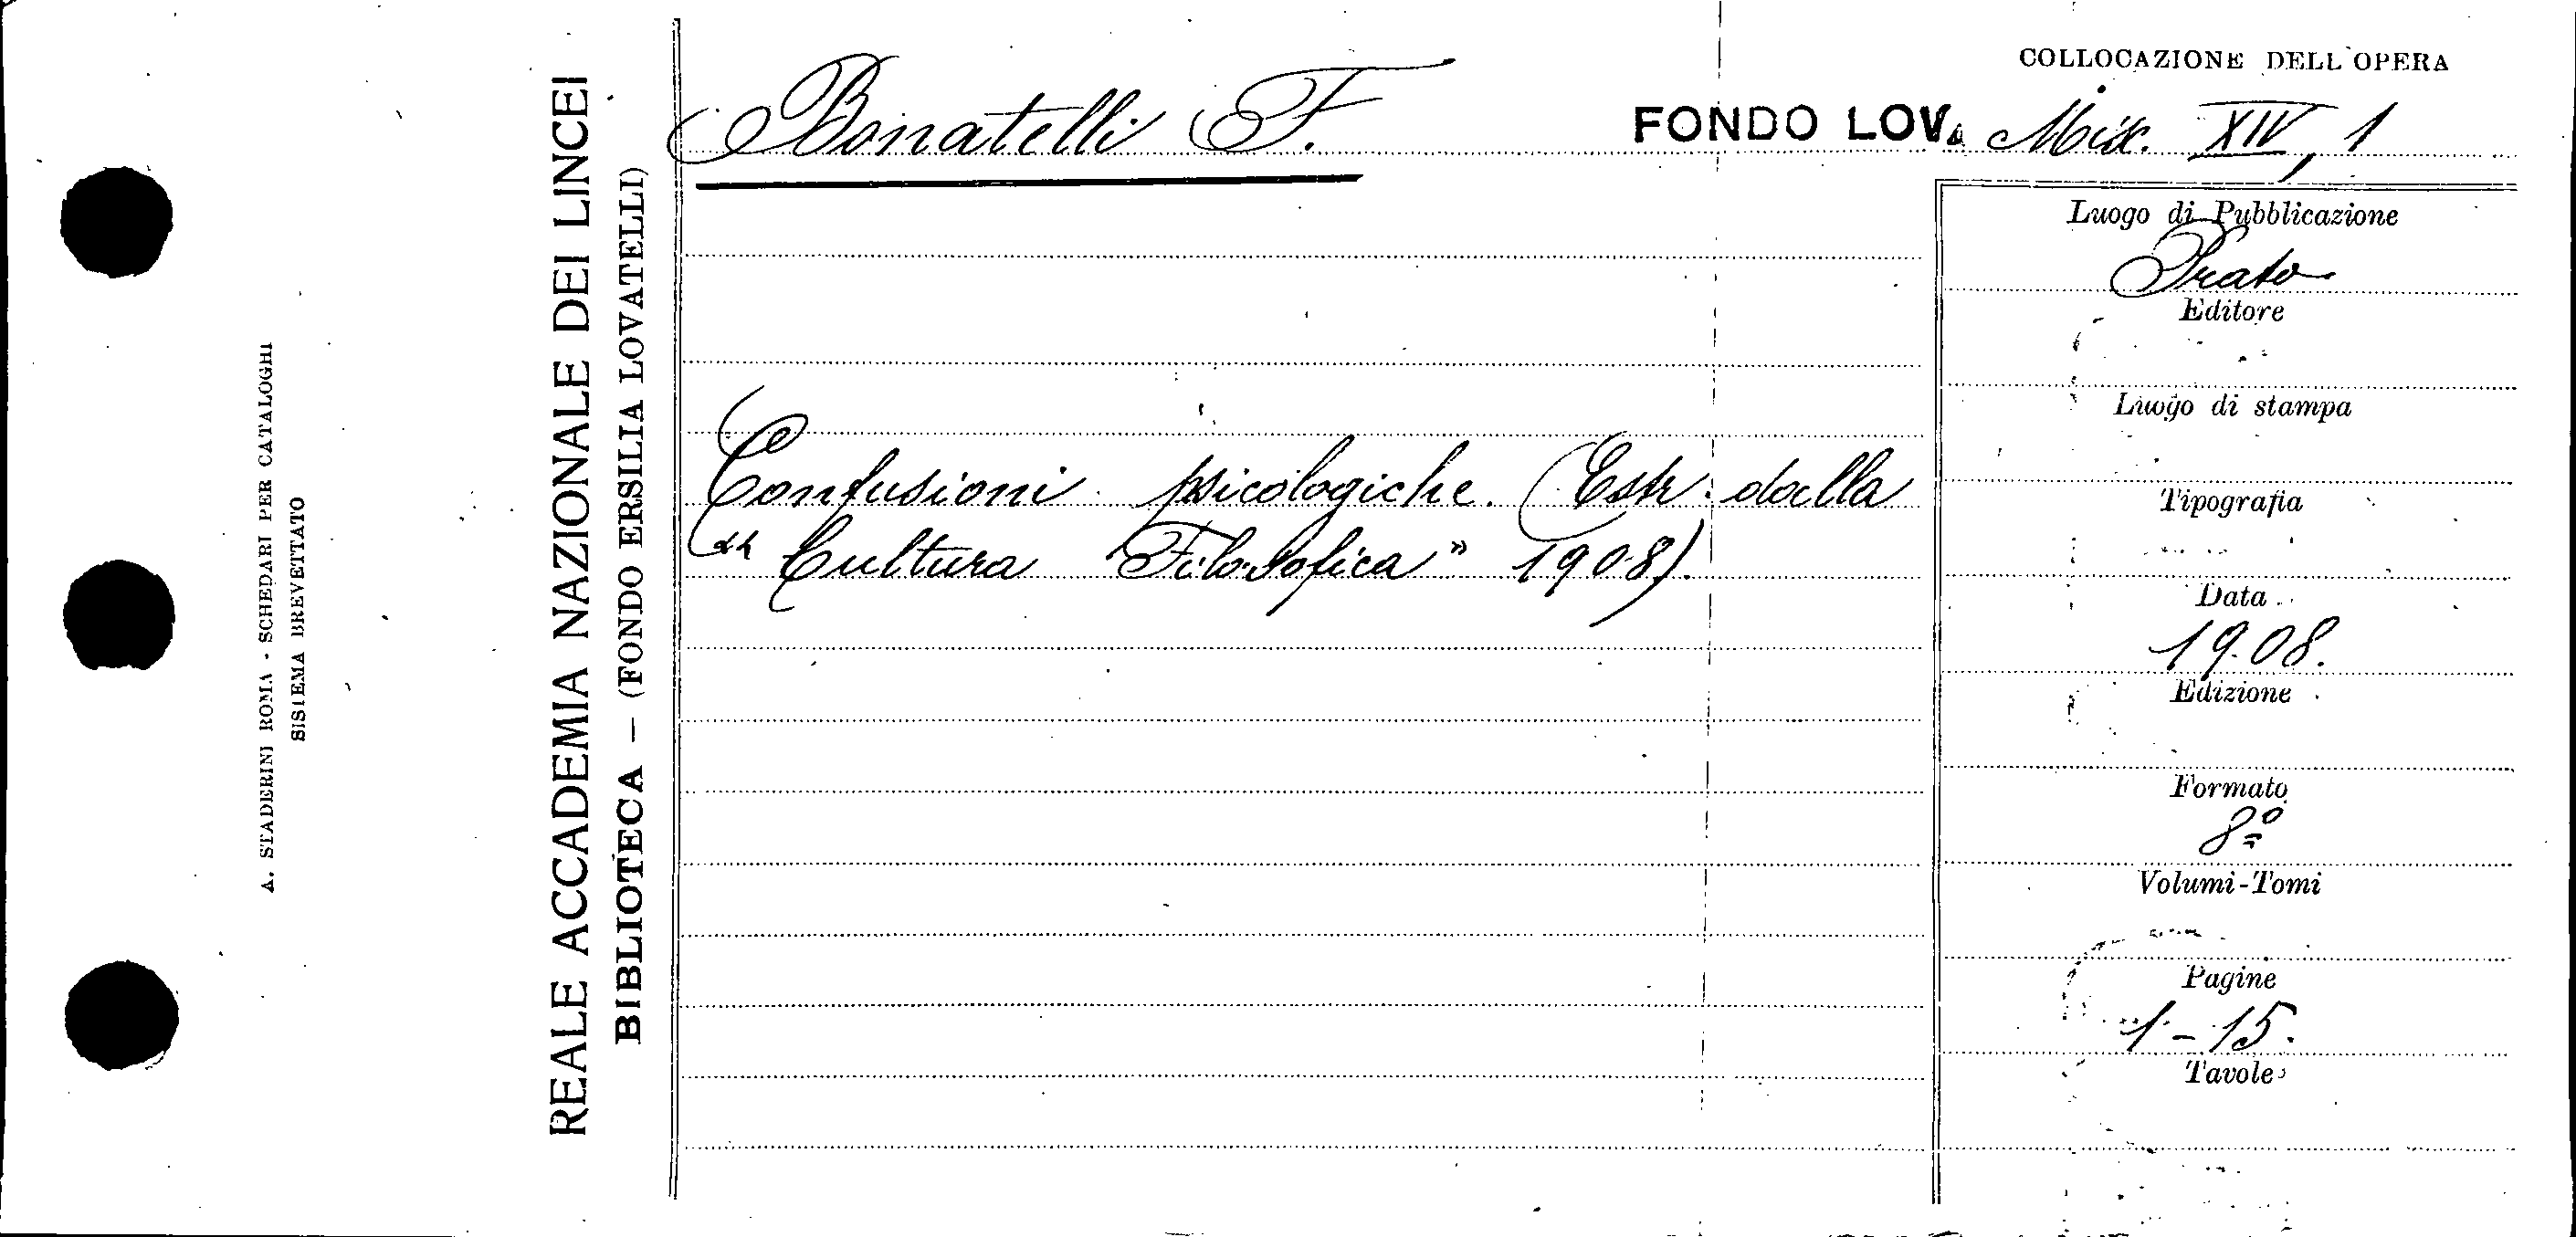 A. STADERINI ROMA - SCHEDARI PER CATALOGHI
SISTEMA BREVETTATO
REALE ACCADEMIA NAZIONALE DEI LINCEI
BIBLIOTECA — (FONDO ERSILIA LOVATELLI)
Bonatelli F.
COLLOCAZIONE DELL'OPERA
FONDO LOV. Mix. XIV, 1
Confusioni psicologiche. (Estr. dalla
“ Cultura Filosofica” 1908).
Luogo di Pubblicazione
Prato
Editore
Luogo di stampa
Tipografia
Data
1908.
Edizione
Formato
8º
Volumi-Tomi
Pagine
1-15.
Tavole